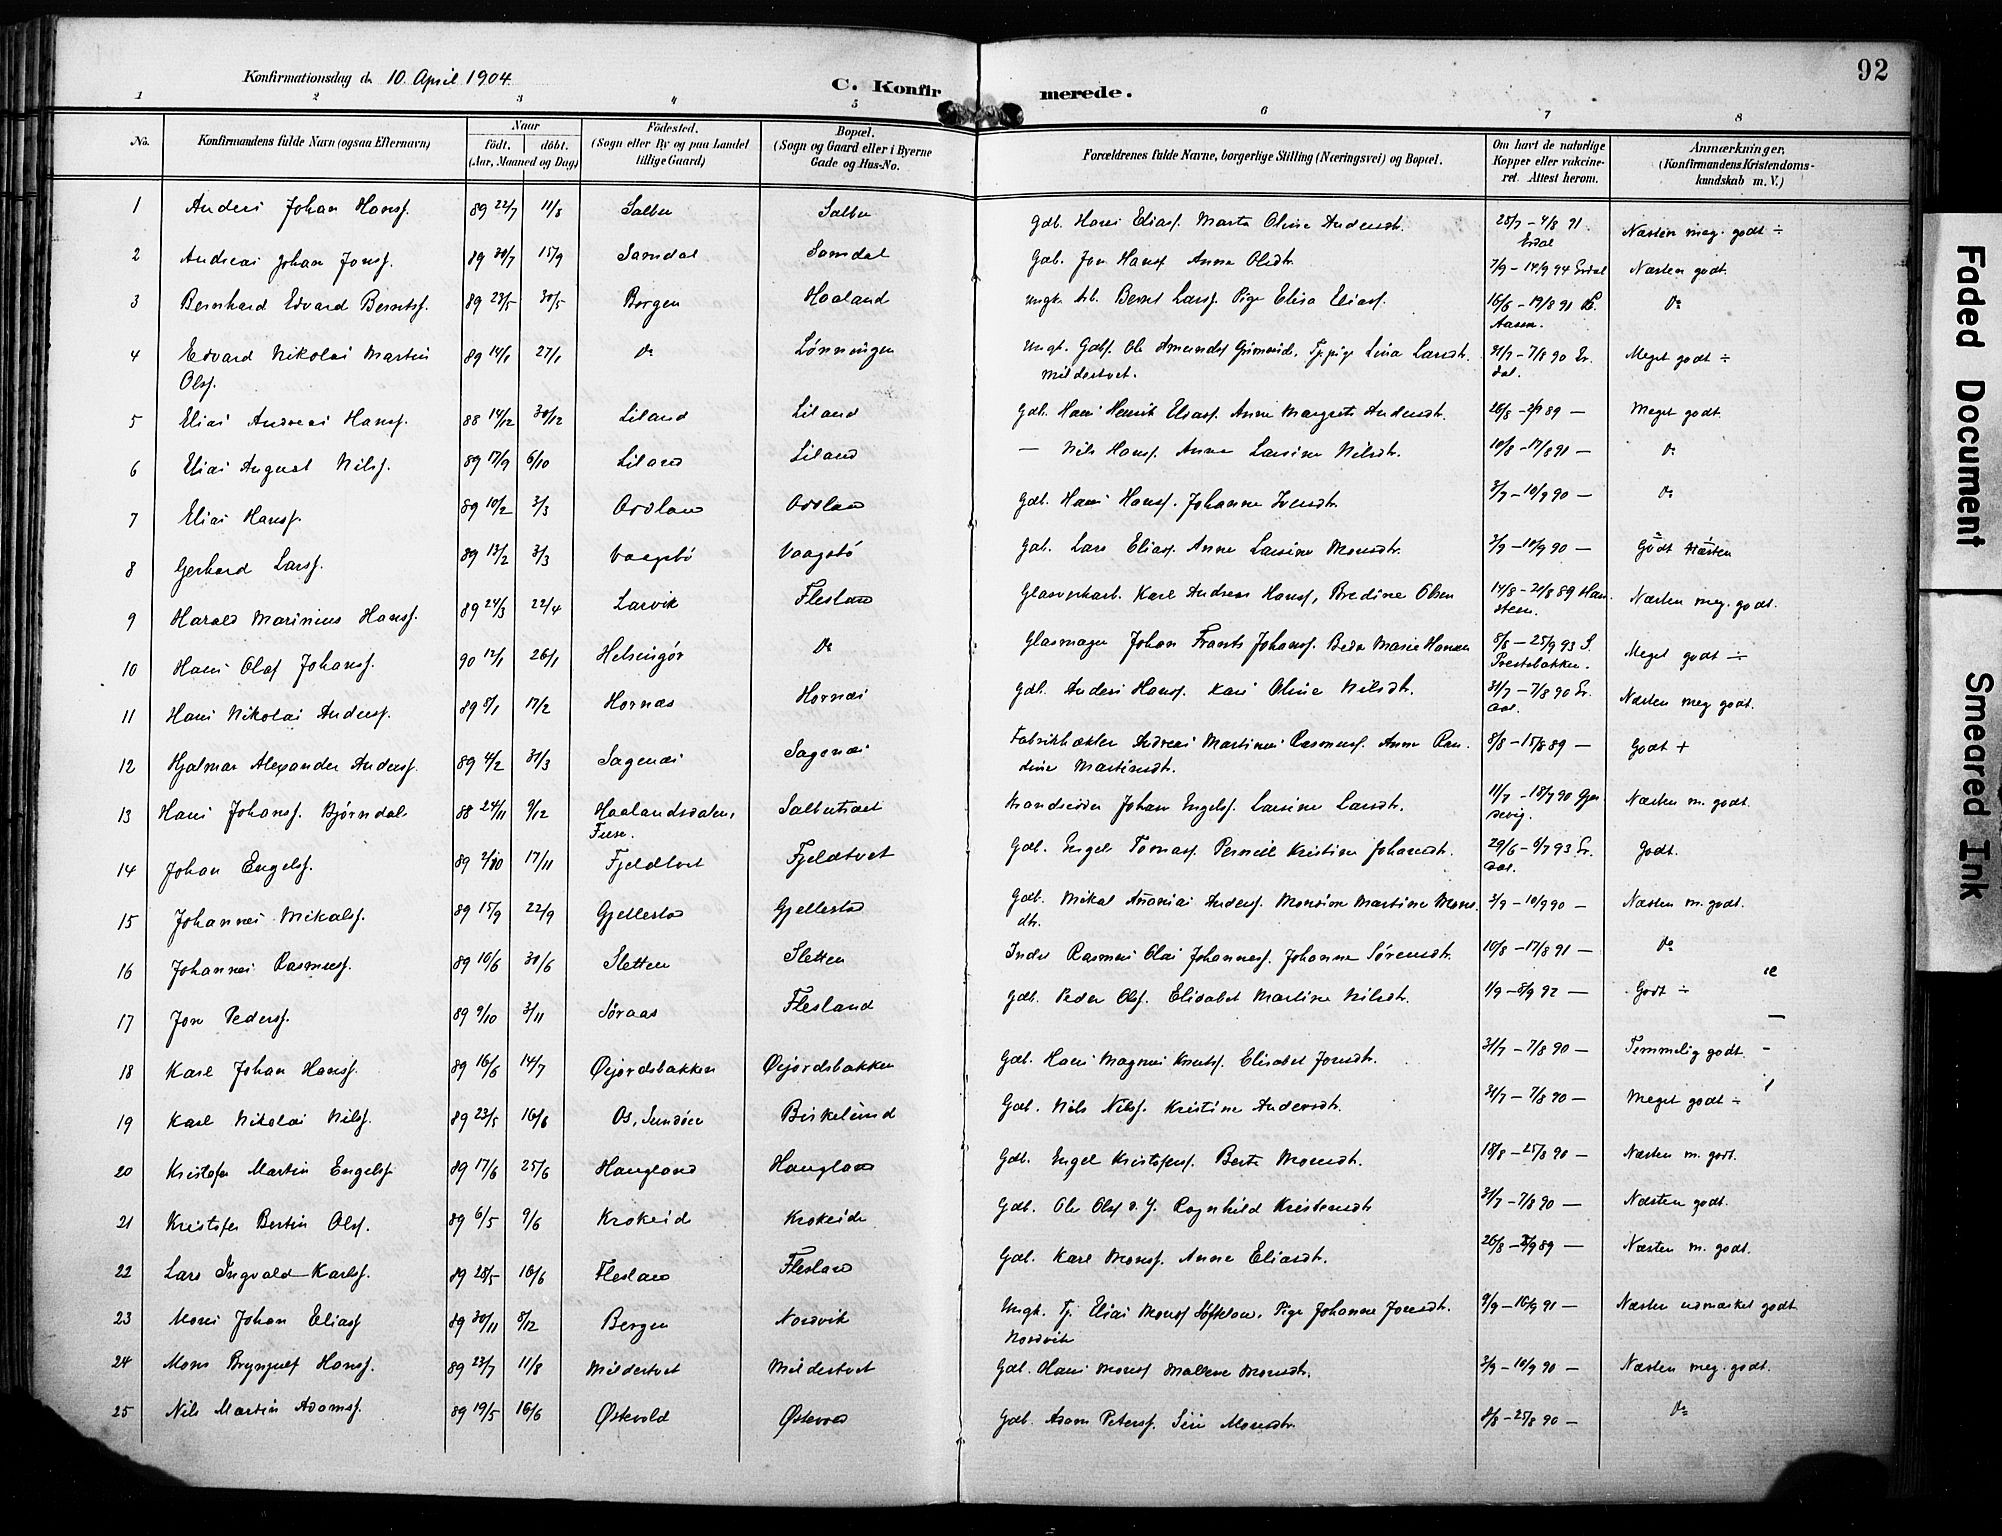 Konfirmationsdag d. 10. April 1904.
C. Konfirmerede.
92
1 2 3 4 5 6 7 8
No.
Konfirmandens fulde Navn (ogsaa Efternavn)
Naar
født. døbt.
(Aar, Maaned og Dag)
Fødested.
(Sogn eller By og paa Landet
tillige Gaard)
Bopæl.
(Sogn og Gaard eller i Byerne
Gade og Hus-No.
Forældrenes fulde Navne, borgerlige Stilling (Næringsvei) og Bopæl.
Om havt de naturlige
Kopper eller vakcine-
ret. Attest herom.
Anmærkninger,
(Konfirmandens Kristendoms-
kundskab m. V.)
1 Anders Johan Hansf. 89 22/7 11/8 Salbu Salbu Gdb. Hans Eliasf. Marta Oline Andersdt. 28/7 – 4/8 91. Næsten meg. godt ÷
Erdal
2 Andreas Johan Jonsf. 89 30/7 15/9 Samdal Samdal Gdb. Jon Hansf. Anna Olsdt. 7/9 – 14/9 94 Erdal Næsten godt.
3 Bernhard Edvard Berntsf. 89 23/5 30/5 Bergen Haaland Ungk. Arb. Bernt Larsf. Pige Elisa Eliasf. 16/6 – 19/8 91 Do
Aasen.
4 Edvard Nikolai Martin 89 14/1 27/1 Do Lønningen Ungk. Gdbf. Ole Amundsf Grimseid. Tj.pige Lina Larsdt. 31/7 – 7/8 90 Er- Meget godt ÷
Olsf. Mildestvet. dal.
5 Elias Andreas Hansf. 88 14/12 30/12 Liland Liland Gdb. Hans Henrik Eliasf. Anna Margrete Andersdt. 26/8 – 2/9 89 — Meget godt.
6 Elias August Nilsf. 89 17/9 6/10 Liland Liland — Nils Hansf. Anna Larsine Nilsdt. 10/8 – 17/8 91 — Do
7 Elias Hansf. 89 10/2 3/3 Ordland Ordland Gdb. Hans Hansf. Johanna Iversdt. 3/9 – 10/9 90 — Do
8 Gerhard Larsf. 89 13/2 3/3 Vaagsbø Vaagsbø Gdb. Lars Eliasf. Anna Larsine Monsdt. 3/9 – 10/9 90 — Godt Næsten
9 Harald Marinius Hansf. 89 24/3 22/4 Larvik Flesland Glasverkarb. Karl Andreas Hansf, Bredine Olsen 14/8 – 21/8 89 Han- Næsten meg. godt.
steen.
10 Hans Olaf Johansf. 90 12/1 26/1 Helsingør Do Glasmager Johan Frants Johansf. Beda Marie Hansen 8/8 – 25/9 93 S. Meget godt ÷
Prestebakke.
11 Hans Nikolai Andersf. 89 8/1 17/2 Hornæs Hornæs Gdb. Anders Hansf. Kari Oline Nilsdt. 31/7 – 7/8 90 Er- Næsten meg godt.
dal.
12 Hjalmar Alexander Andersf. 89 4/2 31/3 Sagenæs Sagenæs Fabrikhekler Andreas Martinus Rasmusf. Anna Ran- 8/8 – 15/8 89 — Godt +
dine Martinsdt.
13 Hans Johansf. Bjørndal 88 24/11 9/12 Haalandsdalen, Salbutræet Strandsidder Johan Engelsf. Larsine Larsdt. 11/7 – 18/7 90 Næsten m. godt.
Fuse.
14 Johan Engelsf. 89 2/10 17/11 Fjeldtvet Fjeldtvet Gdb. Engel Tomasf. Pernille Kristine Johansdt. 29/6 – 6/7 93 Er- Godt.
dal.
15 Johannes Mikalsf. 89 15/9 22/9 Gjellestad Gjellestad Gdb. Mikal Ananias Andersf. Monsine Martine Mons- 3/9 – 10/9 90 — Næsten m. godt.
dt.
16 Johannes Rasmusf. 89 10/6 30/6 Sletten Sletten Inders. Rasmus Olai Johannesf. Johanne Sørensdt. 10/8 – 17/8 91 — Do
17 Jon Pedersf. 89 9/10 3/11 Søraas Flesland Gdb. Peder Olsf. Elisabet Martine Nilsdt. 1/9 – 8/9 92 — Godt ÷
18 Karl Johan Hansf. 89 16/6 14/7 Øvjordsbakken Øvjordsbakken Gdb. Hans Magnus Knutsf. Elisabet Jonsdt. 31/7 – 7/8 90 — Temmelig godt. -
19 Karl Nikolai Nilsf. 89 23/5 16/6 Os, Sundøen Birkelund Gdb. Nils Nilsf. Kristine Andersdt. 31/7 – 7/8 90 — Meget godt ÷
20 Kristofer Martin Engelsf. 89 17/6 25/6 Haugland Haugland Gdb. Engel Kristofersf. Berta Monsdt. 18/8 – 25/8 90 — Næsten m. godt.
21 Kristofer Bertin Olsf. 89 6/5 9/6 Krokeide Krokeide Gdb. Ole Olsf d. Y. Ragnhild Kristensdt. 31/7 – 7/8 90 — Næsten godt.
22 Lars Ingvald Karlsf. 89 28/5 16/6 Flesland Flesland Gdb. Karl Monsf. Anna Eliasdt. 26/8 – 2/9 89 — Næsten m. godt.
23 Mons Johan Eliasf 89 30/11 8/12 Bergen Nordvik Ungk. Tj. Elias Monsf Søfteland. Pige Johanne Jonsdt. 9/9 – 16/9 91 — Næsten udmærket godt
Nordvik
24 Mons Brynjulf Hansf. 89 23/7 11/8 Mildestvet Mildestvet Gdb. Hans Monsf Malene Monsdt. 3/9 – 10/9 90 — Næsten meg. godt.
25 Nils Martin Adamsf. 89 19/5 16/6 Østevold Østevold Gdb. Adam Petersf. Siri Monsdt. 8/8 – 25/8 90 — Do
Faded Document
Smeared Ink